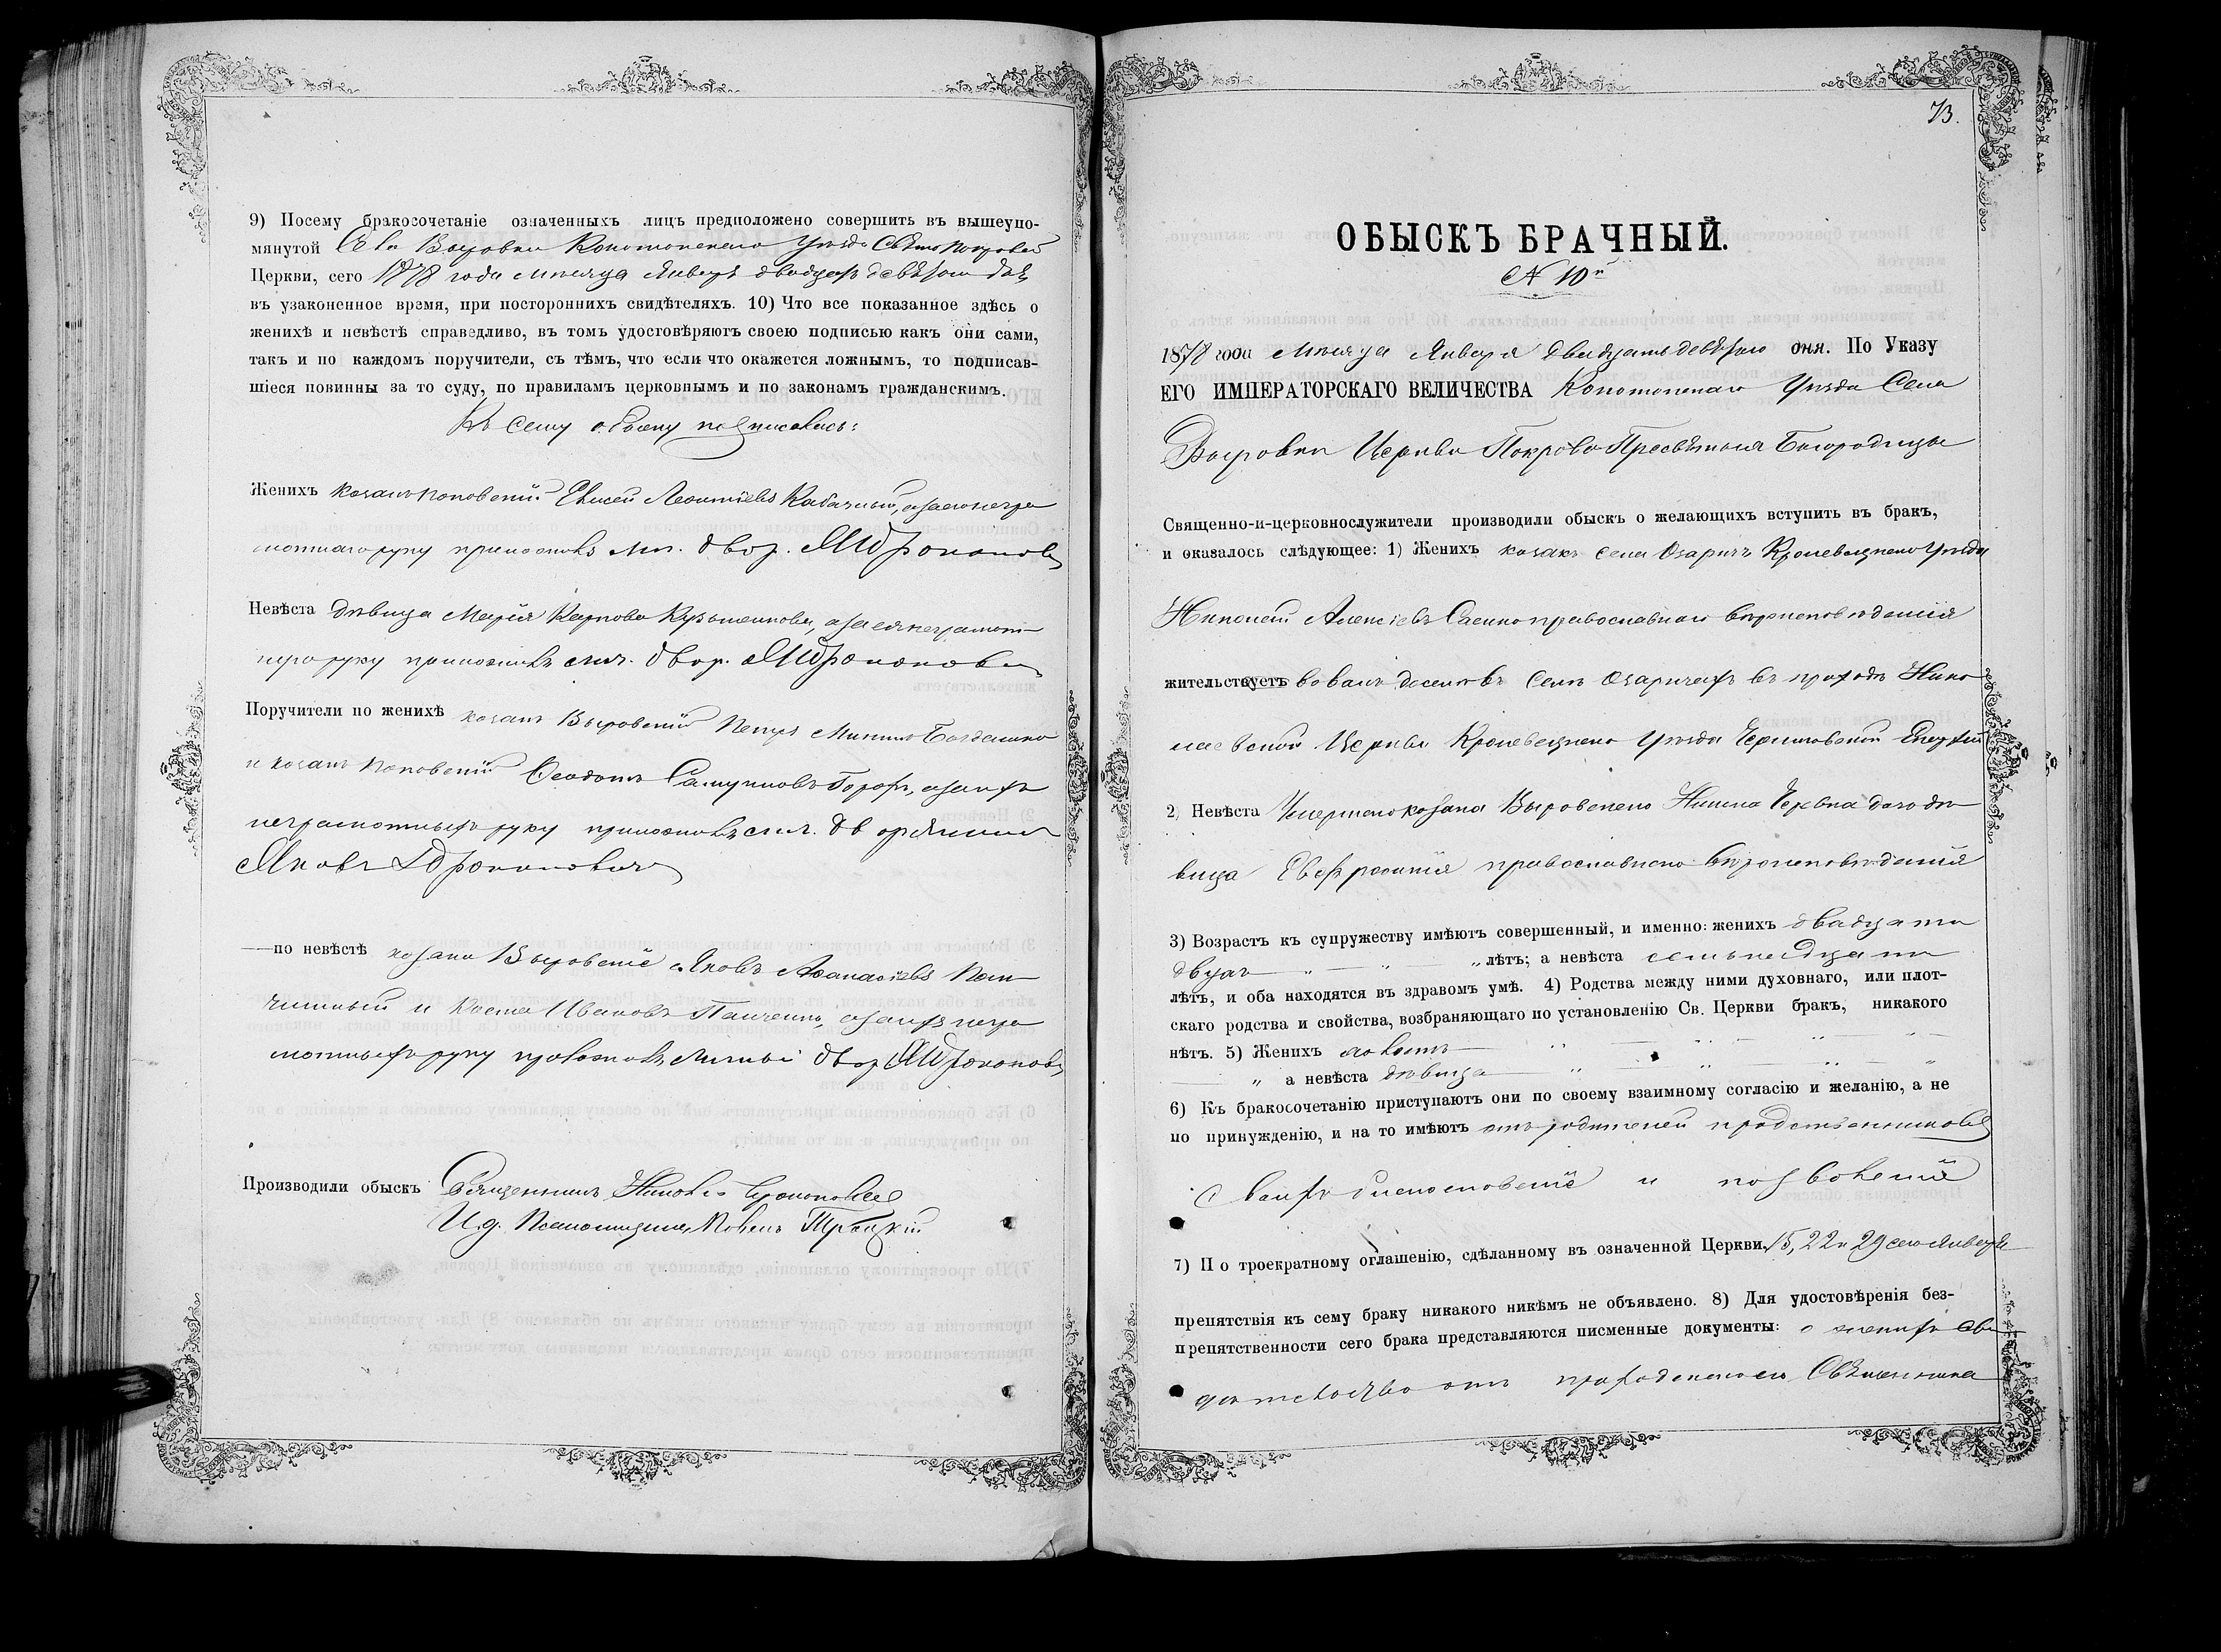 9) Посему бракосочетаніе означенныхъ лицъ предположено совершить въ вышеупо-
мянутой Села Выровки Конотопскаго Уѣзда Свято Покровской
Церкви, сего 1878 года мѣсяца Января двадцать девятого дня
въ узаконенное время, при постороннихъ свидѣтеляхъ. 10) Что все показанное здѣсь о
женихѣ и невѣстѣ справедливо, въ томъ удостовѣряютъ своею подписью какъ они сами,
такъ и по каждомъ поручители, съ тѣмъ, что если что окажется ложнымъ, то подписав-
шіеся повинны за то суду, по правиламъ церковнымъ и по законамъ гражданскимъ.
Къ сему обыску подписались:
Женихъ козакъ Поповскій Елисей Леонтіевъ Кабачный, а за него негра
мотнаго руку приложилъ двор.
Невѣста дѣвица Марія Карпова, а за ея неграмот-
ную руку приложилъ двор.
Поручители по женихѣ козакъ Выровскій Петръ
и козакъ Поповскій Ѳеодотъ Самуиловъ, а за ихъ
неграмотныхъ руку приложилъ дворянинъ
Яковъ
—по невѣстѣ козаки Выровскіе Яковъ Аѳанасіевъ
и Ивановъ Панченко, а за ихъ негра
мотныхъ руку приложилъ двор
Производили обыскъ Священникъ
И. д. Псаломщика Павелъ Троицкій
73.
ОБЫСКЪ БРАЧНЫЙ.
№ 10й
1878 года мѣсяца Января двадцать девятого дня. По Указу
ЕГО ИМПЕРАТОРСКАГО ВЕЛИЧЕСТВА Конотопскаго Уѣзда Села
Выровки Церкви Покрова Пресвятыя Богородицы
Священно-и-церковнослужители производили обыскъ о желающихъ вступить въ бракъ,
и оказалось слѣдующее: 1) Женихъ козакъ села Озаричъ Кролевецкаго Уѣзда
Николай Алексіевъ Саенко православнаго вѣроисповѣданія
жительствуетъ вовалъ доселѣ въ Селѣ Озаричахъ въ приходѣ Нико
лаевской Церкви Кролевецкаго Уѣзда Черниговской Епархіи
2) Невѣста Умершаго козака Выровскаго дочь дѣ
вица Евфросинія православнаго вѣроисповѣданія
3) Возрастъ къ супружеству имѣютъ совершенный, и именно: женихъ двадцати
двухъ „ „ „ лѣтъ; а невѣста семьнадцати
лѣтъ, и оба находятся въ здравомъ умѣ. 4) Родства между ними духовнаго, или плот-
скаго родства и свойства, возбраняющаго по установленію Св. Церкви бракъ, никакого
нѣтъ. 5) Женихъ холостъ
„ а невѣста дѣвица
6) Къ бракосочетанію приступаютъ они по своему взаимному согласію и желанію, а не
по принужденію, и на то имѣютъ отъ родителей родственниковъ
своихъ благословеніе и позволеніе
7) По троекратному оглашенію, сдѣланному въ означенной Церкви 15, 22 и 29 сего Января
препятствія къ сему браку никакого никѣмъ не объявлено. 8) Для удостовѣренія без-
препятственности сего брака представляются писменные документы: о женихѣ сви
дѣтельство отъ приходскаго Священника